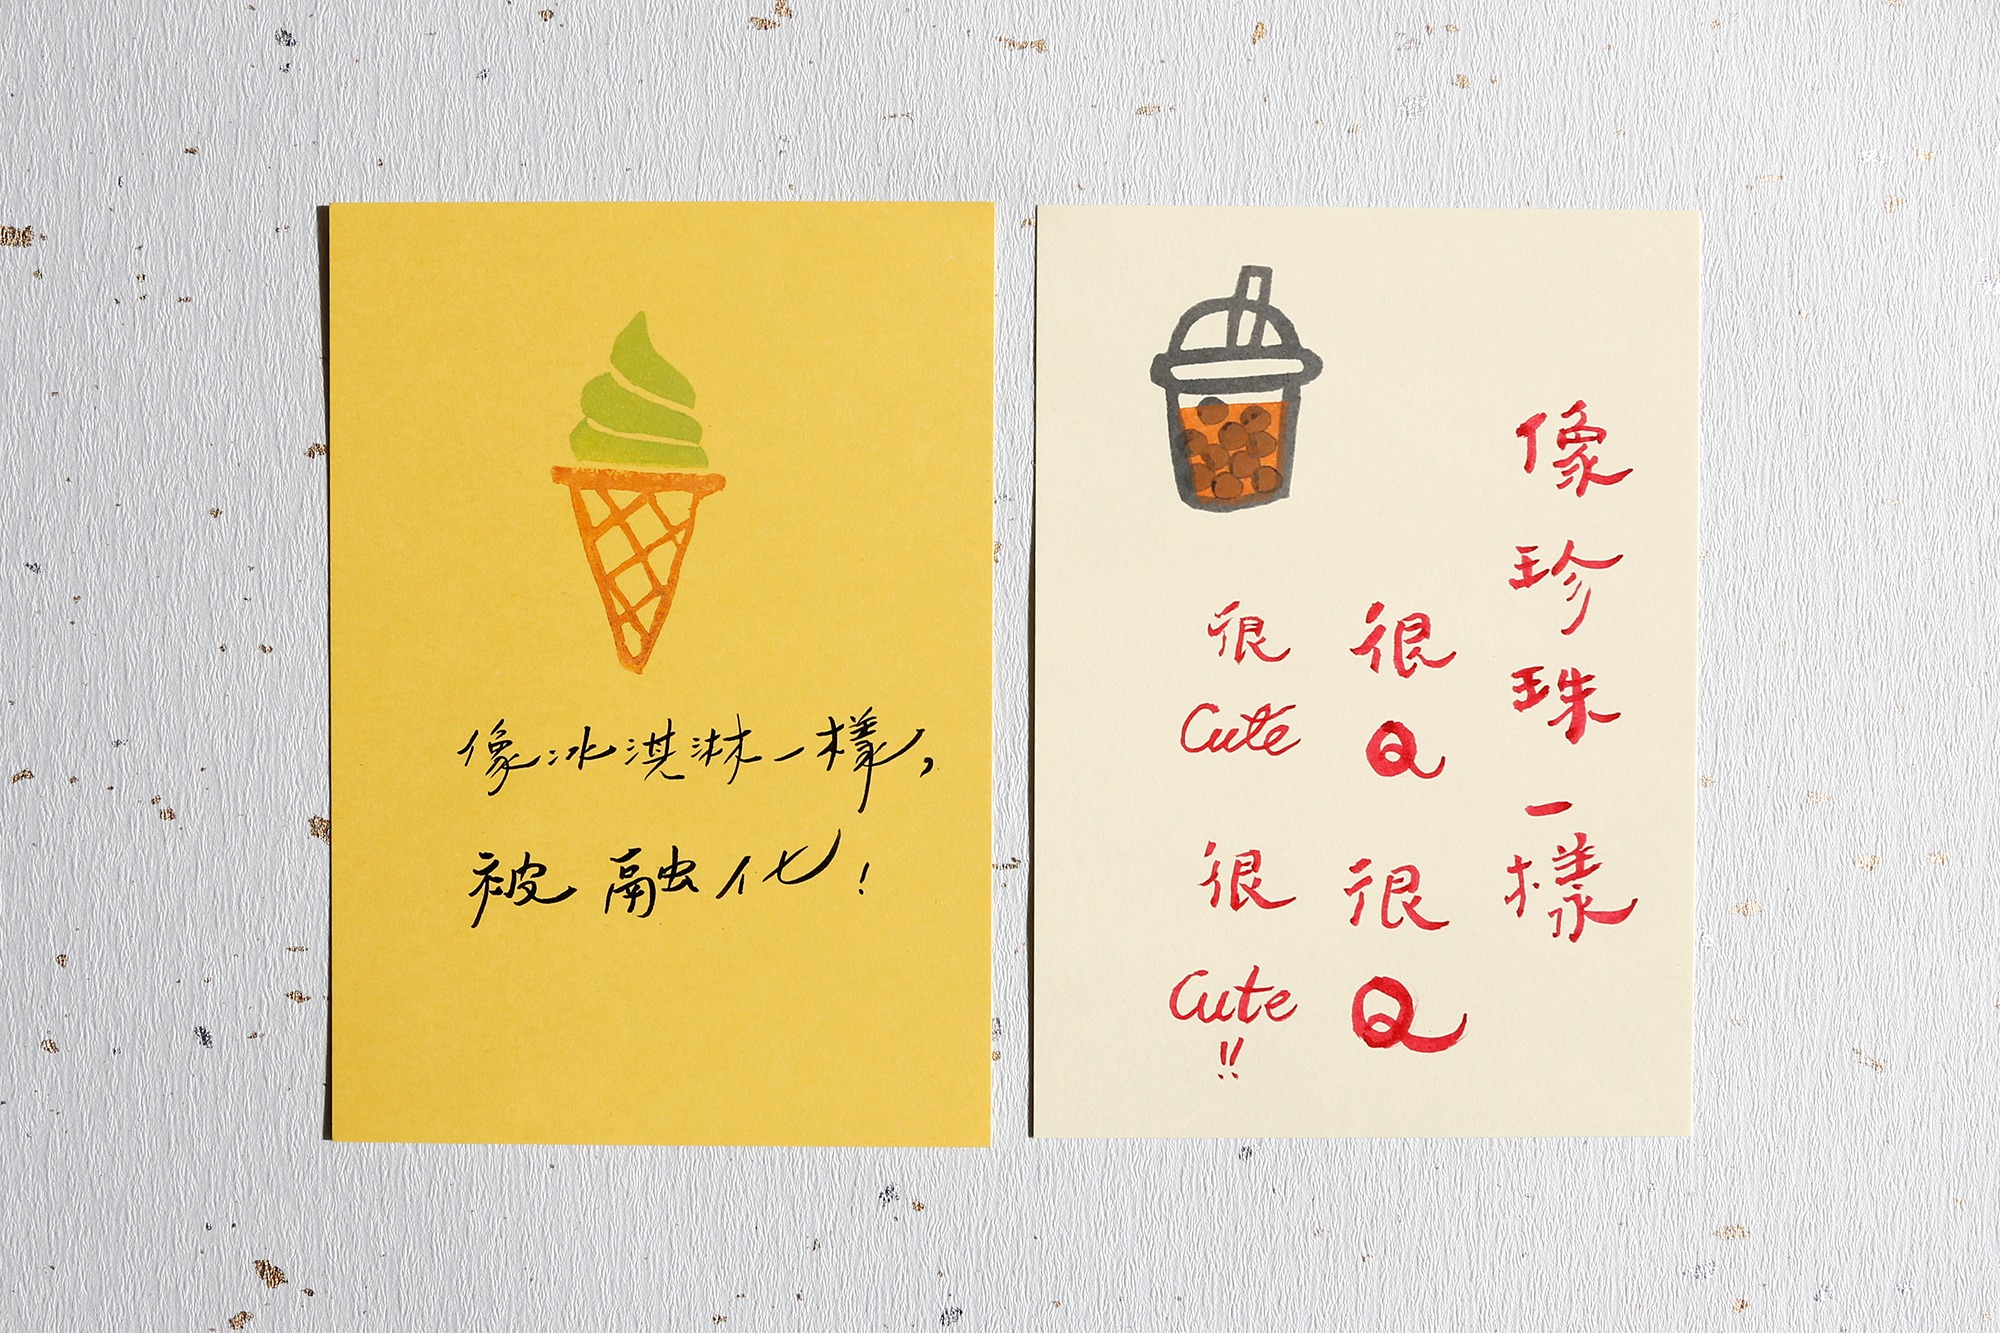 像冰淇淋一樣，
被融化！
像珍珠一樣
很Q很Q
很Cute很Cute!!